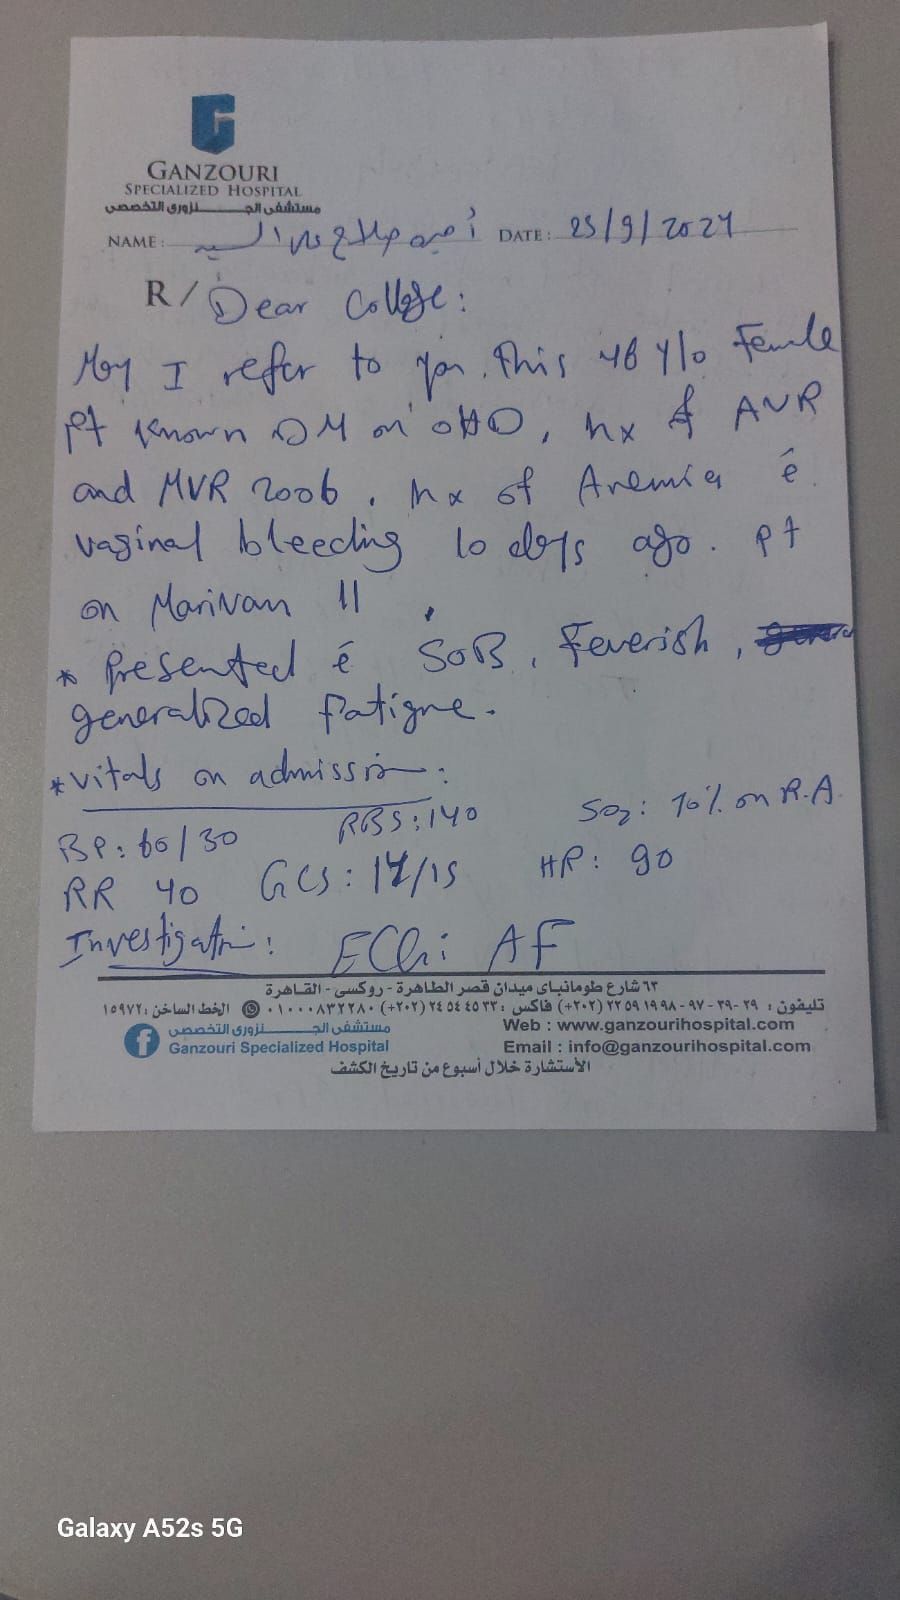 GANZOURI
SPECIALIZED HOSPITAL
مستشفى الجنزورى التخصصى
NAME: صلاح السيد DATE: 25/9/2024
R/ Dear College:
May I refer to you. this 46 y/o Female
pt known DM on OHD, hx of AVR
and MVR 2006. hx of Anemia é
vaginal bleeding 10 days ago. pt
on Marivan 11
* Presented é SOB, Feverish,
generalized fatigue.
* vitals on admission:
BP: 60/30 RBS: 140 SO2: 70% on R.A
RR 40 GCS: 14/15 HR: 90
Investigation: ECG: AF
٦٣ شارع طومانباى ميدان قصر الطاهرة - روكسى - القاهرة
تليفون : ٢٩ - ٣٩ - ٩٧ - ٩٨ ١٩ ٥٩ ٢٢ (٢٠٢+) فاكس : ٣٣ ٤٥ ٥٤ ٢٤ (٢٠٢+) ٠١٠٠٠٨٣٢٢٨٠ الخط الساخن : ١٥٩٧٢
مستشفى الجنزورى التخصصى
Ganzouri Specialized Hospital
Web : www.ganzourihospital.com
Email : info@ganzourihospital.com
الأستشارة خلال أسبوع من تاريخ الكشف
Galaxy A52s 5G